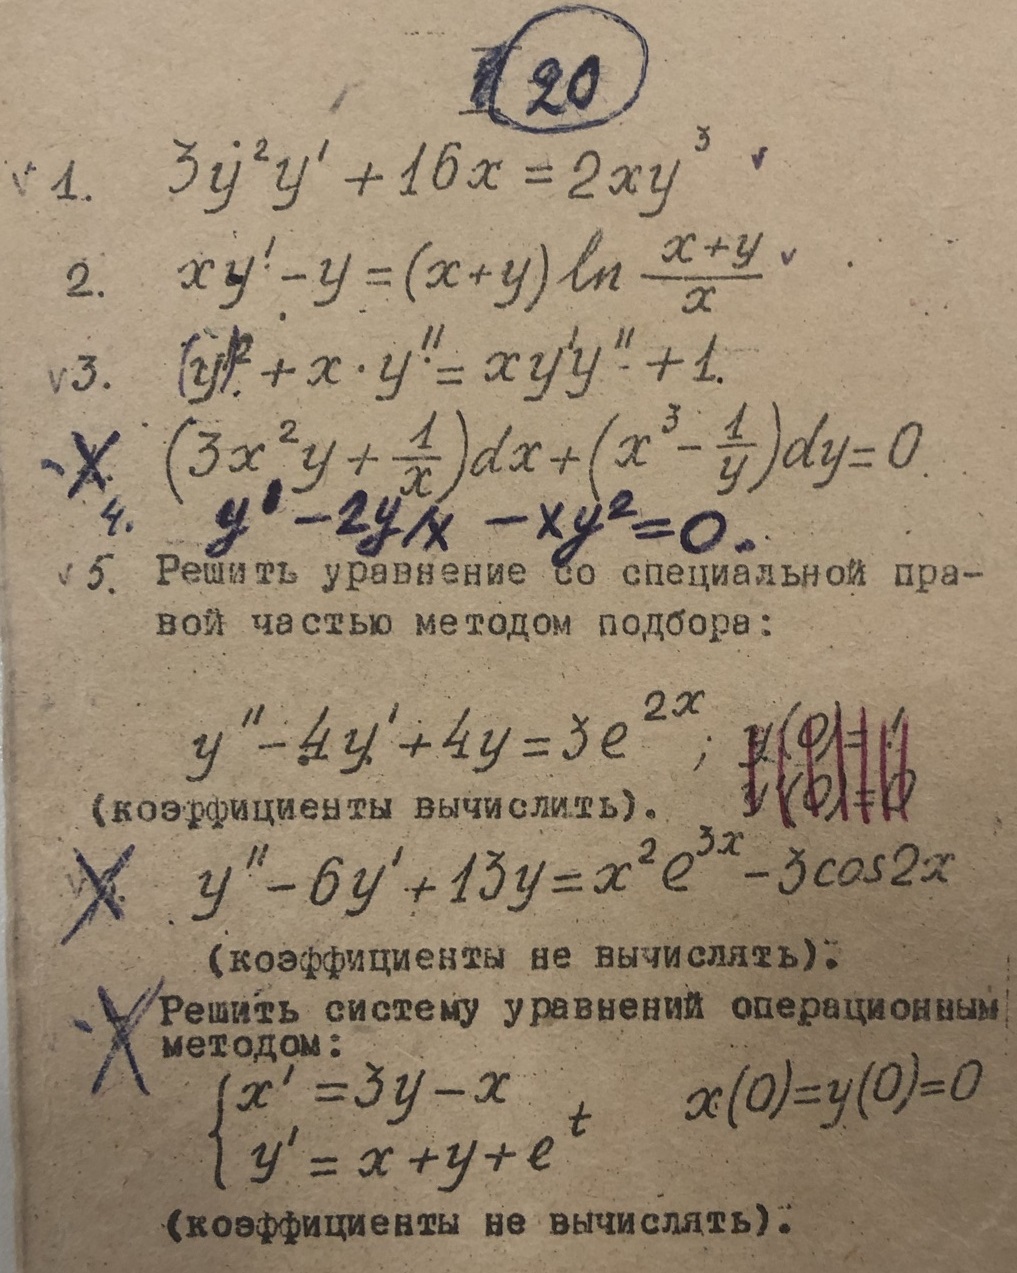 20
1. 3y²y' + 16x = 2xy³
2. xy' - y = (x+y) ln (x+y)/x
3. (y')² + x · y'' = xy'y'' + 1.
(3x²y + 1/x)dx + (x³ - 1/y)dy = 0.
4. y' - 2y/x - xy² = 0.
5. Решить уравнение со специальной пра-
вой частью методом подбора:
y'' - 4y' + 4y = 3e^{2x}; y(0)=1
y'(0)=0
(коэффициенты вычислить).
y'' - 6y' + 13y = x²e^{3x} - 3cos2x
(коэффициенты не вычислять).
Решить систему уравнений операционным
методом:
{ x' = 3y - x
y' = x + y + e^t x(0)=y(0)=0
(коэффициенты не вычислять).